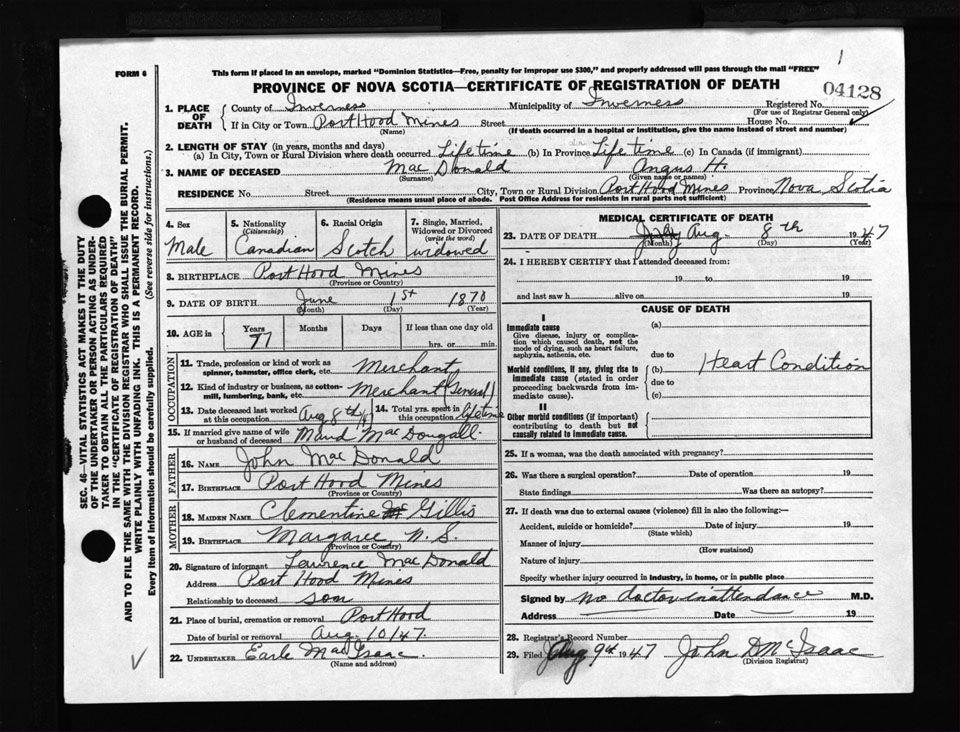 FORM 6
This form if placed in an envelope, marked "Dominion Statistics—Free, penalty for improper use $300," and properly addressed will pass through the mail "FREE"
1
04128
PROVINCE OF NOVA SCOTIA—CERTIFICATE OF REGISTRATION OF DEATH
1. PLACE OF DEATH { County of Inverness Municipality of Inverness Registered No.
(For use of Registrar General only)
If in City or Town Port Hood Mines Street House No.
(Name) (If death occurred in a hospital or institution, give the name instead of street and number)
2. LENGTH OF STAY (in years, months and days)
(a) In City, Town or Rural Division where death occurred Lifetime (b) In Province Lifetime (c) In Canada (if immigrant)
3. NAME OF DECEASED Mac Donald Angus H.
(Surname) (Given name or names)
RESIDENCE No. Street City, Town or Rural Division Port Hood Mines Province Nova Scotia
(Residence means usual place of abode. Post Office Address for residents in rural parts not sufficient)
4. Sex Male
5. Nationality (Citizenship) Canadian
6. Racial Origin Scotch
7. Single, Married, Widowed or Divorced (write the word) widowed
8. BIRTHPLACE Port Hood Mines
(Province or Country)
9. DATE OF BIRTH June 1st 1870
(Month) (Day) (Year)
10. AGE in Years 77 Months Days If less than one day old
hrs. or min.
OCCUPATION
11. Trade, profession or kind of work as spinner, teamster, office clerk, etc. Merchant
12. Kind of industry or business, as cotton-mill, lumbering, bank, etc. Merchant (General)
13. Date deceased last worked at this occupation Aug 8th/47
14. Total yrs. spent in this occupation lifetime
15. If married give name of wife or husband of deceased Maud MacDougall.
FATHER
16. NAME John MacDonald
17. BIRTHPLACE Port Hood Mines
(Province or Country)
MOTHER
18. MAIDEN NAME Clementine Gillis
19. BIRTHPLACE Margaree N.S.
(Province or Country)
20. Signature of informant Lawrence MacDonald
Address Port Hood Mines
Relationship to deceased son
21. Place of burial, cremation or removal Port Hood
Date of burial or removal Aug. 10/47.
22. UNDERTAKER Earle MacIsaac.
(Name and address)
MEDICAL CERTIFICATE OF DEATH
23. DATE OF DEATH July Aug. 8th 1947
(Month) (Day) (Year)
24. I HEREBY CERTIFY that I attended deceased from:
19 to 19
and last saw h alive on 19
CAUSE OF DEATH
I
Immediate cause
Give disease, injury or complication which caused death, not the mode of dying, such as heart failure, asphyxia, asthenia, etc.
(a)
due to
Morbid conditions, if any, giving rise to immediate cause (stated in order proceeding backwards from immediate cause).
(b) Heart Condition
due to
(c)
II
Other morbid conditions (if important) contributing to death but not causally related to immediate cause.
25. If a woman, was the death associated with pregnancy?
26. Was there a surgical operation? Date of operation 19
State findings Was there an autopsy?
27. If death was due to external causes (violence) fill in also the following:—
Accident, suicide or homicide? Date of injury 19
(State which)
Manner of injury
(How sustained)
Nature of injury
Specify whether injury occurred in industry, in home, or in public place
Signed by no doctor in attendance M.D.
Address Date 19
28. Registrar's Record Number
29. Filed Aug 9th 1947 John D McIsaac
(Division Registrar)
SEC. 46—VITAL STATISTICS ACT MAKES IT THE DUTY
OF THE UNDERTAKER OR PERSON ACTING AS UNDER-
TAKER TO OBTAIN ALL THE PARTICULARS REQUIRED
IN THE "CERTIFICATE OF REGISTRATION OF DEATH"
AND TO FILE THE SAME WITH THE DIVISION REGISTRAR WHO SHALL ISSUE THE BURIAL PERMIT.
WRITE PLAINLY WITH UNFADING INK. THIS IS A PERMANENT RECORD.
Every item of information should be carefully supplied. (See reverse side for instructions.)